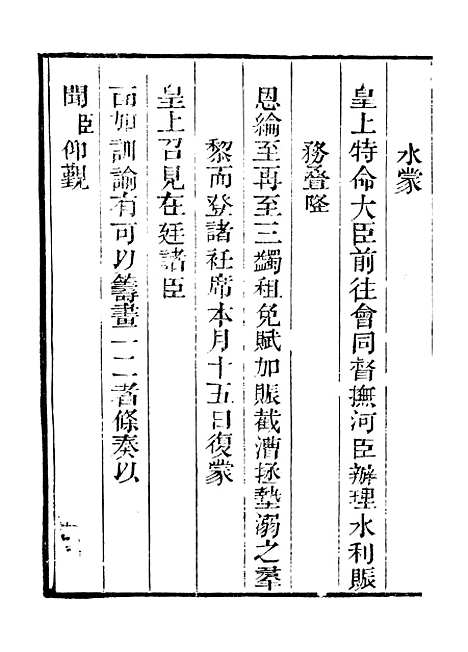 水蒙
皇上特命大臣前往會同督撫河臣辦理水利賑
務疊隆
恩綸至再至三蠲租免賦加賑截漕拯墊溺之羣
黎而登諸袵席本月十五日復蒙
皇上召見在廷諸臣
面加訓諭有可以籌畫一二者條奏以
聞臣仰觀